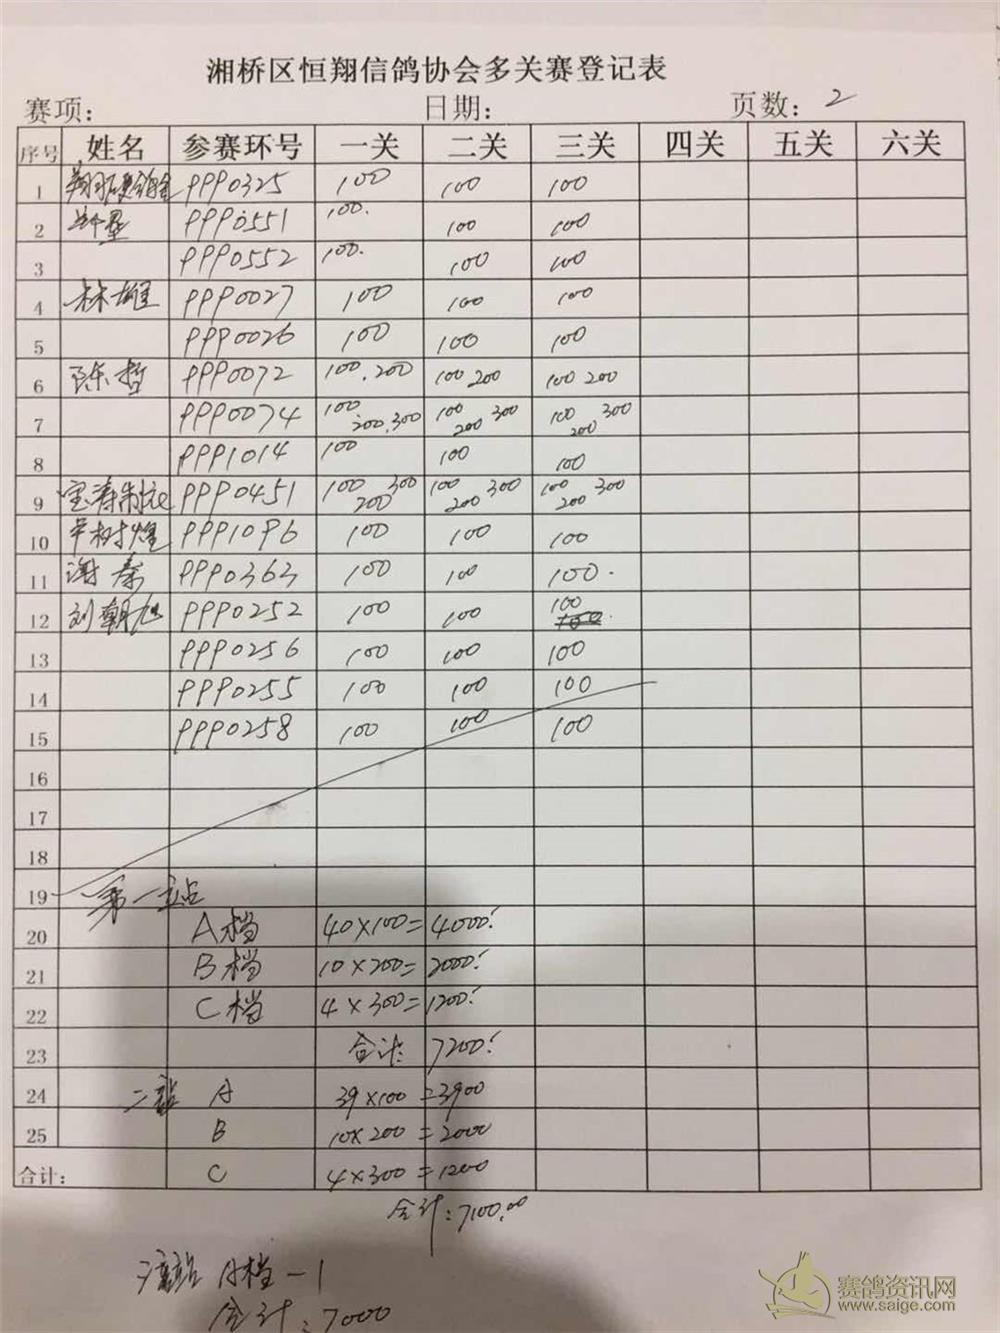 湘桥区恒翔信鸽协会多关赛登记表
赛项: 日期: 页数: 2
序号 姓名 参赛环号 一关 二关 三关 四关 五关 六关
1 PPP0325 100 100 100
2 PPP0551 100. 100 100
3 PPP0552 100. 100 100
4 林雄 PPP0027 100 100 100
5 PPP0026 100 100 100
6 陈哲 PPP0072 100.200 100 200 100 200
7 PPP0074 100 200.300 100 200 300 100 200 300
8 PPP1014 100 100 100
9 宝涛制衣 PPP0451 100 200 300 100 200 300 100 200 300
10 辛树煌 PPP1096 100 100 100
11 谢泰 PPP0363 100 100 100.
12 刘朝旭 PPP0252 100 100 100
13 PPP0256 100 100 100
14 PPP0255 100 100 100
15 PPP0258 100 100 100
16
17
18
19 第一站
20 A档 40×100=4000.
21 B档 10×200=2000.
22 C档 4×300=1200.
23 合计: 7200.
24 二站 A 39×100=3900
25 B 10×200=2000
合计: C 4×300=1200
合计: 7100.00
A档-1
合计: 7000
赛鸽资讯网
www.saige.com